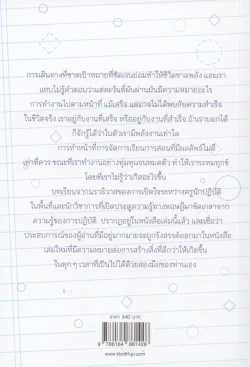 การเดินทางที่ขาดเป้าหมายที่ชัดเจนย่อมทำให้ชีวิตขาดพลัง และเรา
แทบไม่รู้คำตอบว่าแต่ละวันที่ผันผ่านมันมีความหมายอะไร
การทำงานไปตามหน้าที่ แม้เสร็จ แต่อาจไม่ได้พบกับความสำเร็จ
ในชีวิตจริง เราอยู่กับงานที่เสร็จ หรืออยู่กับงานที่สำเร็จ ถ้าเราบอกได้
ก็จักรู้ได้ว่าในตัวเรามีพลังงานเท่าใด
การทำหน้าที่การจัดการเรียนการสอนที่มีผลลัพธ์ไม่ดี
เท่าที่ควร ขณะที่เราทำงานอย่างทุ่มทุนจนหมดตัว ทำให้เราระทมทุกข์
โดยที่เราไม่รู้ว่าเกิดอะไรขึ้น
บทเรียนจากนราธิวาสของการเปิดใจระหว่างครูนักปฏิบัติ
ในพื้นที่และนักวิชาการที่เปิดประตูความรู้ทางทฤษฎีมาขัดเกลาจาก
ความรู้ของการปฏิบัติ ปรากฏอยู่ในหนังสือเล่มนี้แล้ว และเชื่อว่า
ประสบการณ์ของผู้อ่านที่มีอยู่มากมายจะถูกรังสรรค์ออกมาในหนังสือ
เล่มใหม่ที่มีความหมายต่อการสร้างสิ่งที่ดีกว่าให้เกิดขึ้น
ในทุก ๆ เวลาที่เป็นไปได้ด้วยสองมือของท่านเอง
ราคา 340 บาท
9 786164 861428
www.kledthai.com